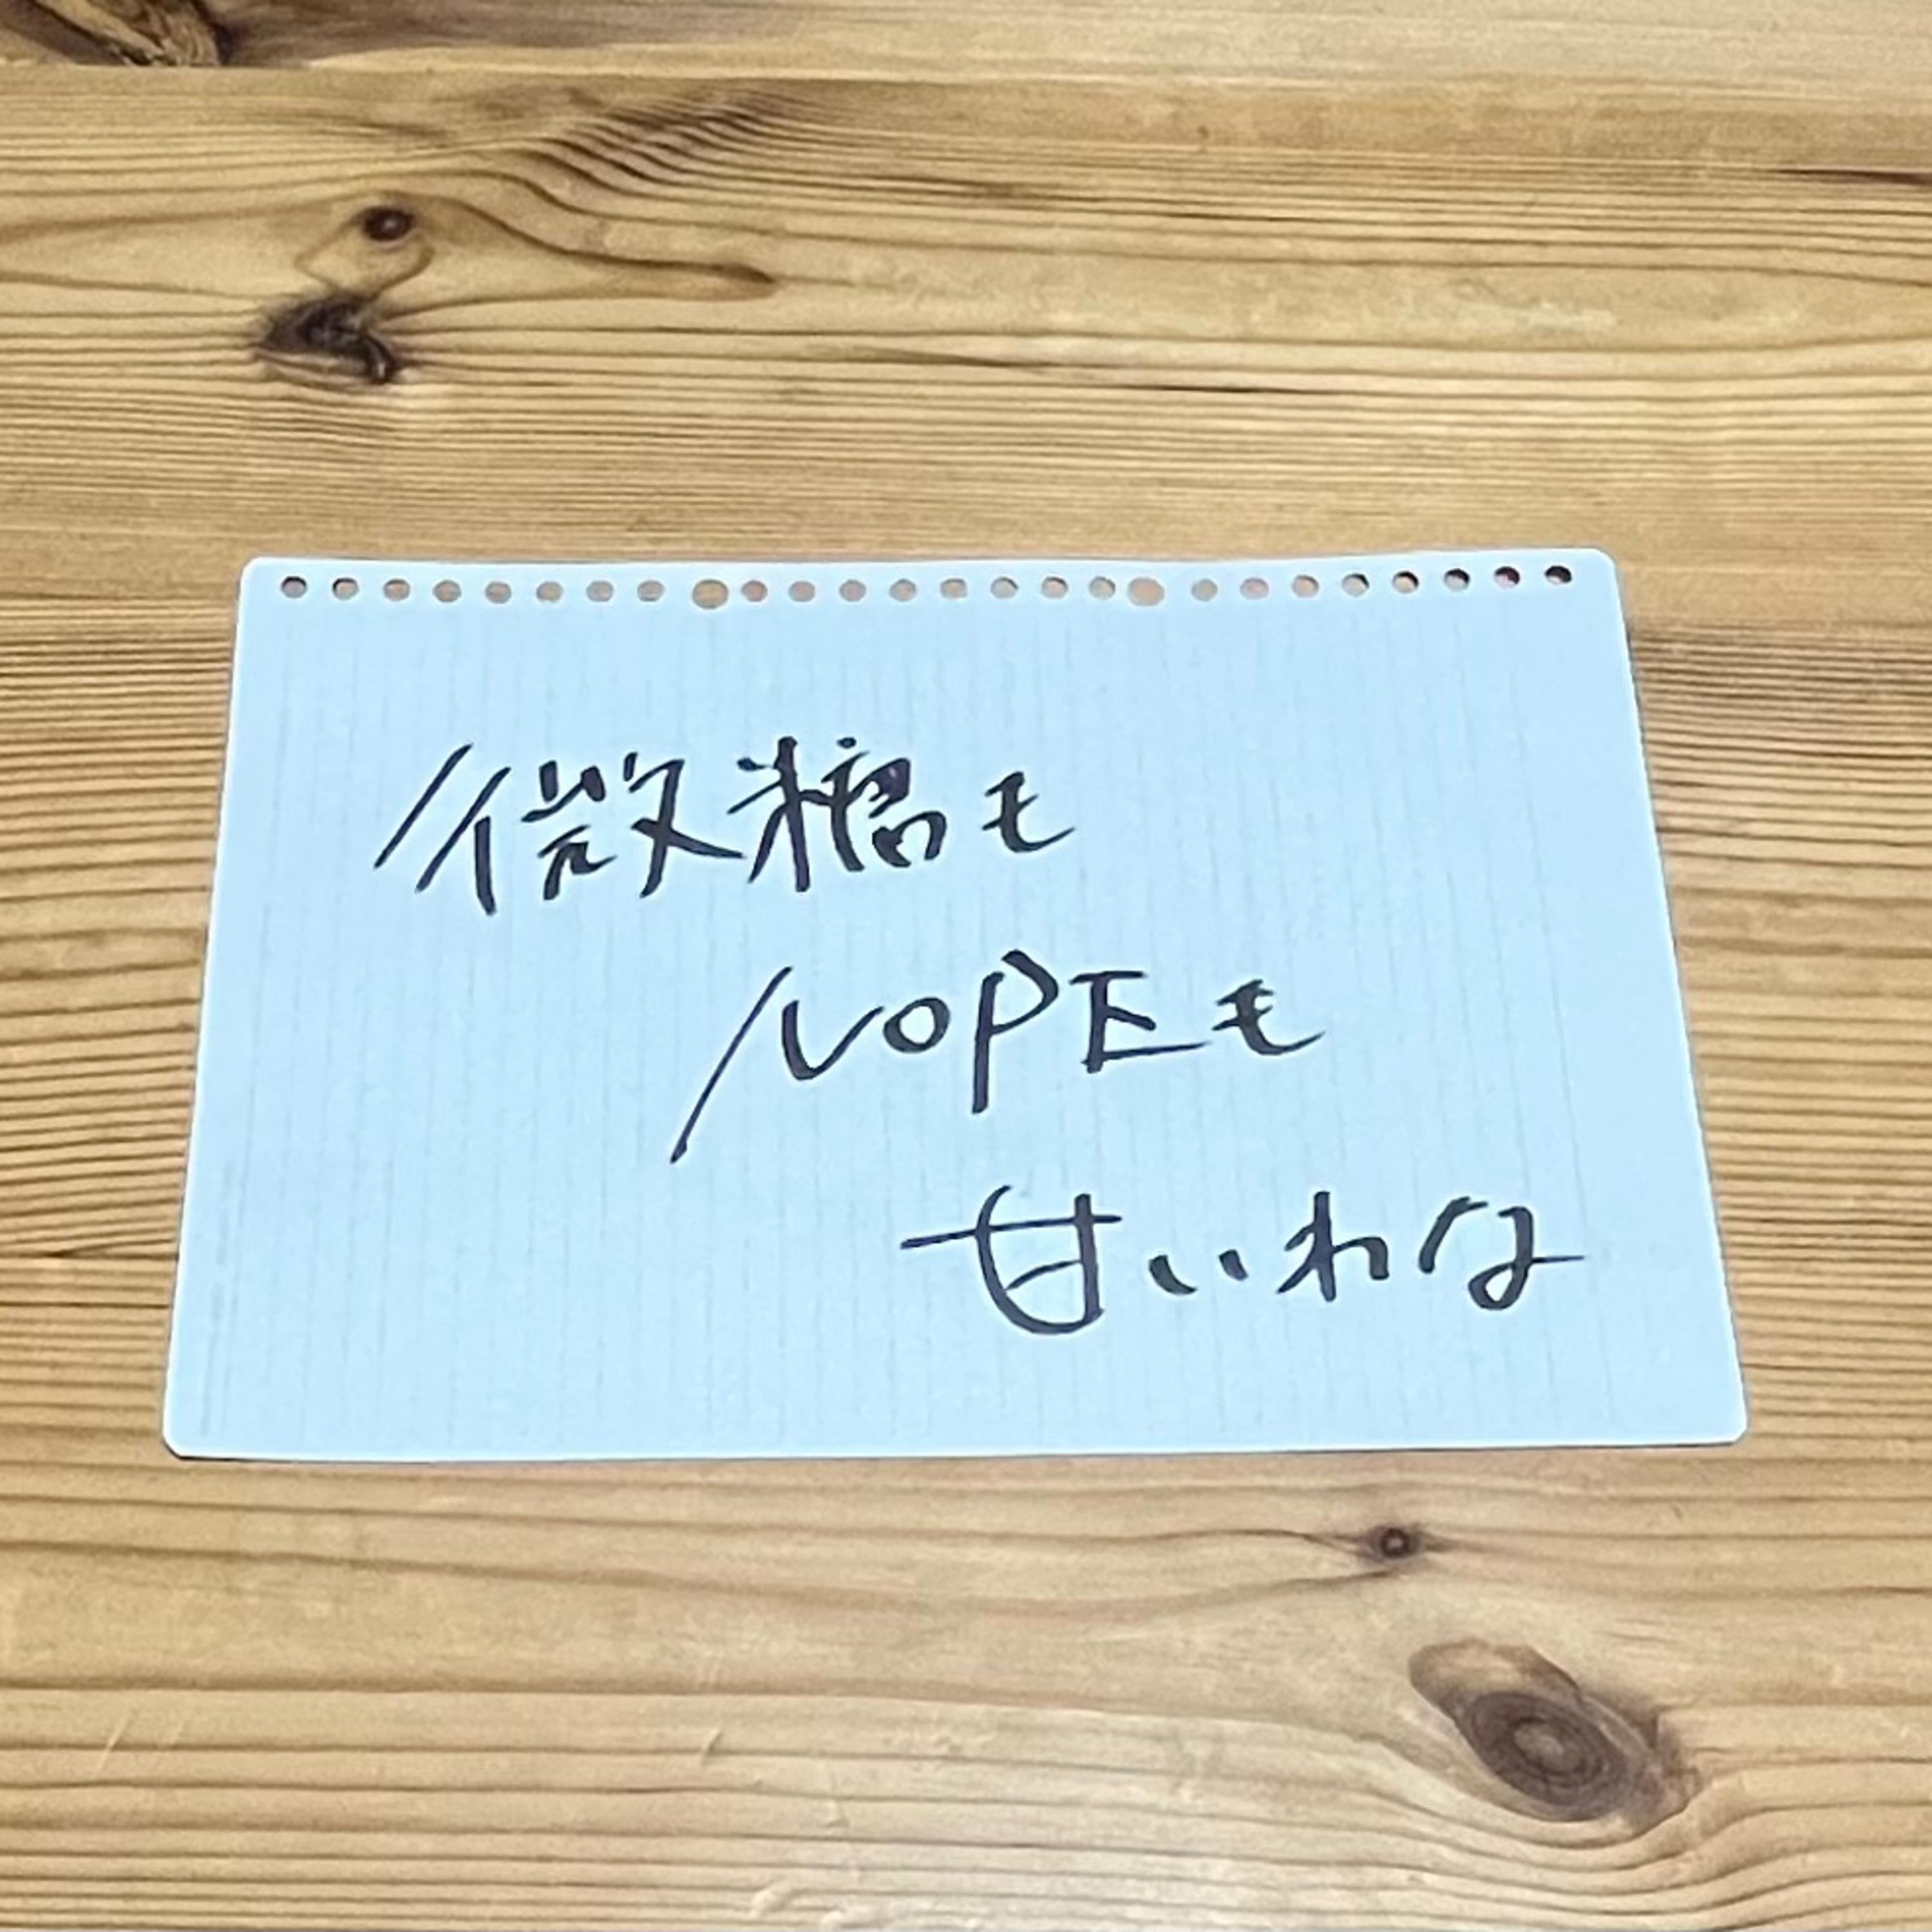 微糖も
NOPEも
甘いわな